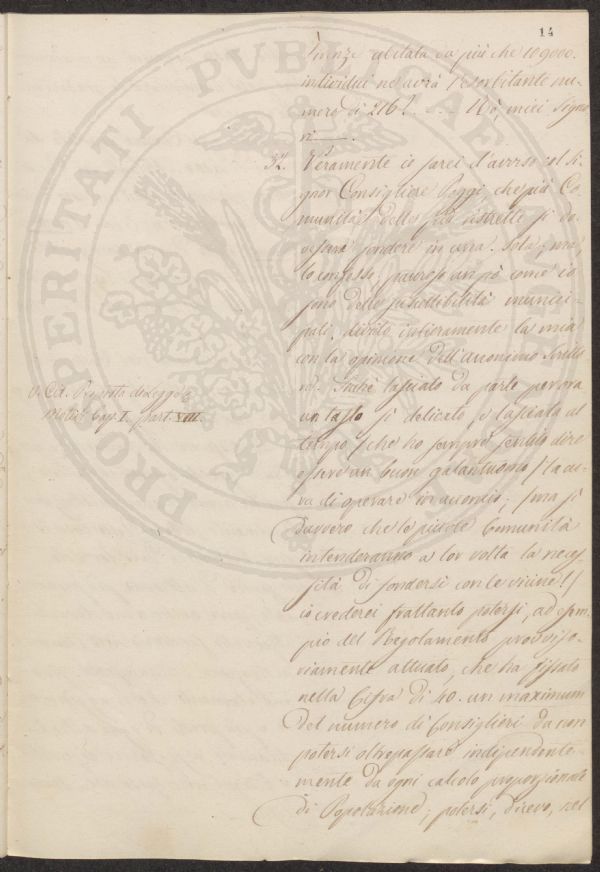 14
Firenze abitata da più che 109000.
individui ne avrà l'esorbitante nu-
mero di 216? - - - Nò, miei Signo-
ri —.
32. Veramente io sarei d'avviso col Si-
gnor Consigliere Poggi, che più Co-
munità delle più ristrette si do-
vessero fondere in una sola; ma,
lo confesso: pauroso un pò come io
sono delle suscettibilità munici-
pali, divido intieramente la mia
con la opinione dell'anonimo Scritto-
re. Perchè lasciato da parte per ora
un tasto sì delicato, e lasciata al
tempo (che ho sempre sentito dire
essere un buon galantuomo) la cu-
ra di operare
davvero che le piccole Comunità
intenderanno a lor volta la neces-
sità di fondersi con le vicine!)
io crederei frattanto potersi, ad esem-
pio del Regolamento provviso-
riamente attuato, che ha fissato
nella Cifra di 40. un maximum
del numero di Consiglieri da non
potersi oltrepassare indipendente-
mente da ogni calcolo proporzionale
di Popolazione; potersi, dicevo, nel
V. Cit. Proposta di Legge e
Motivi Cap. I. part. VIII.
PROSPERITATI PVBLICAE